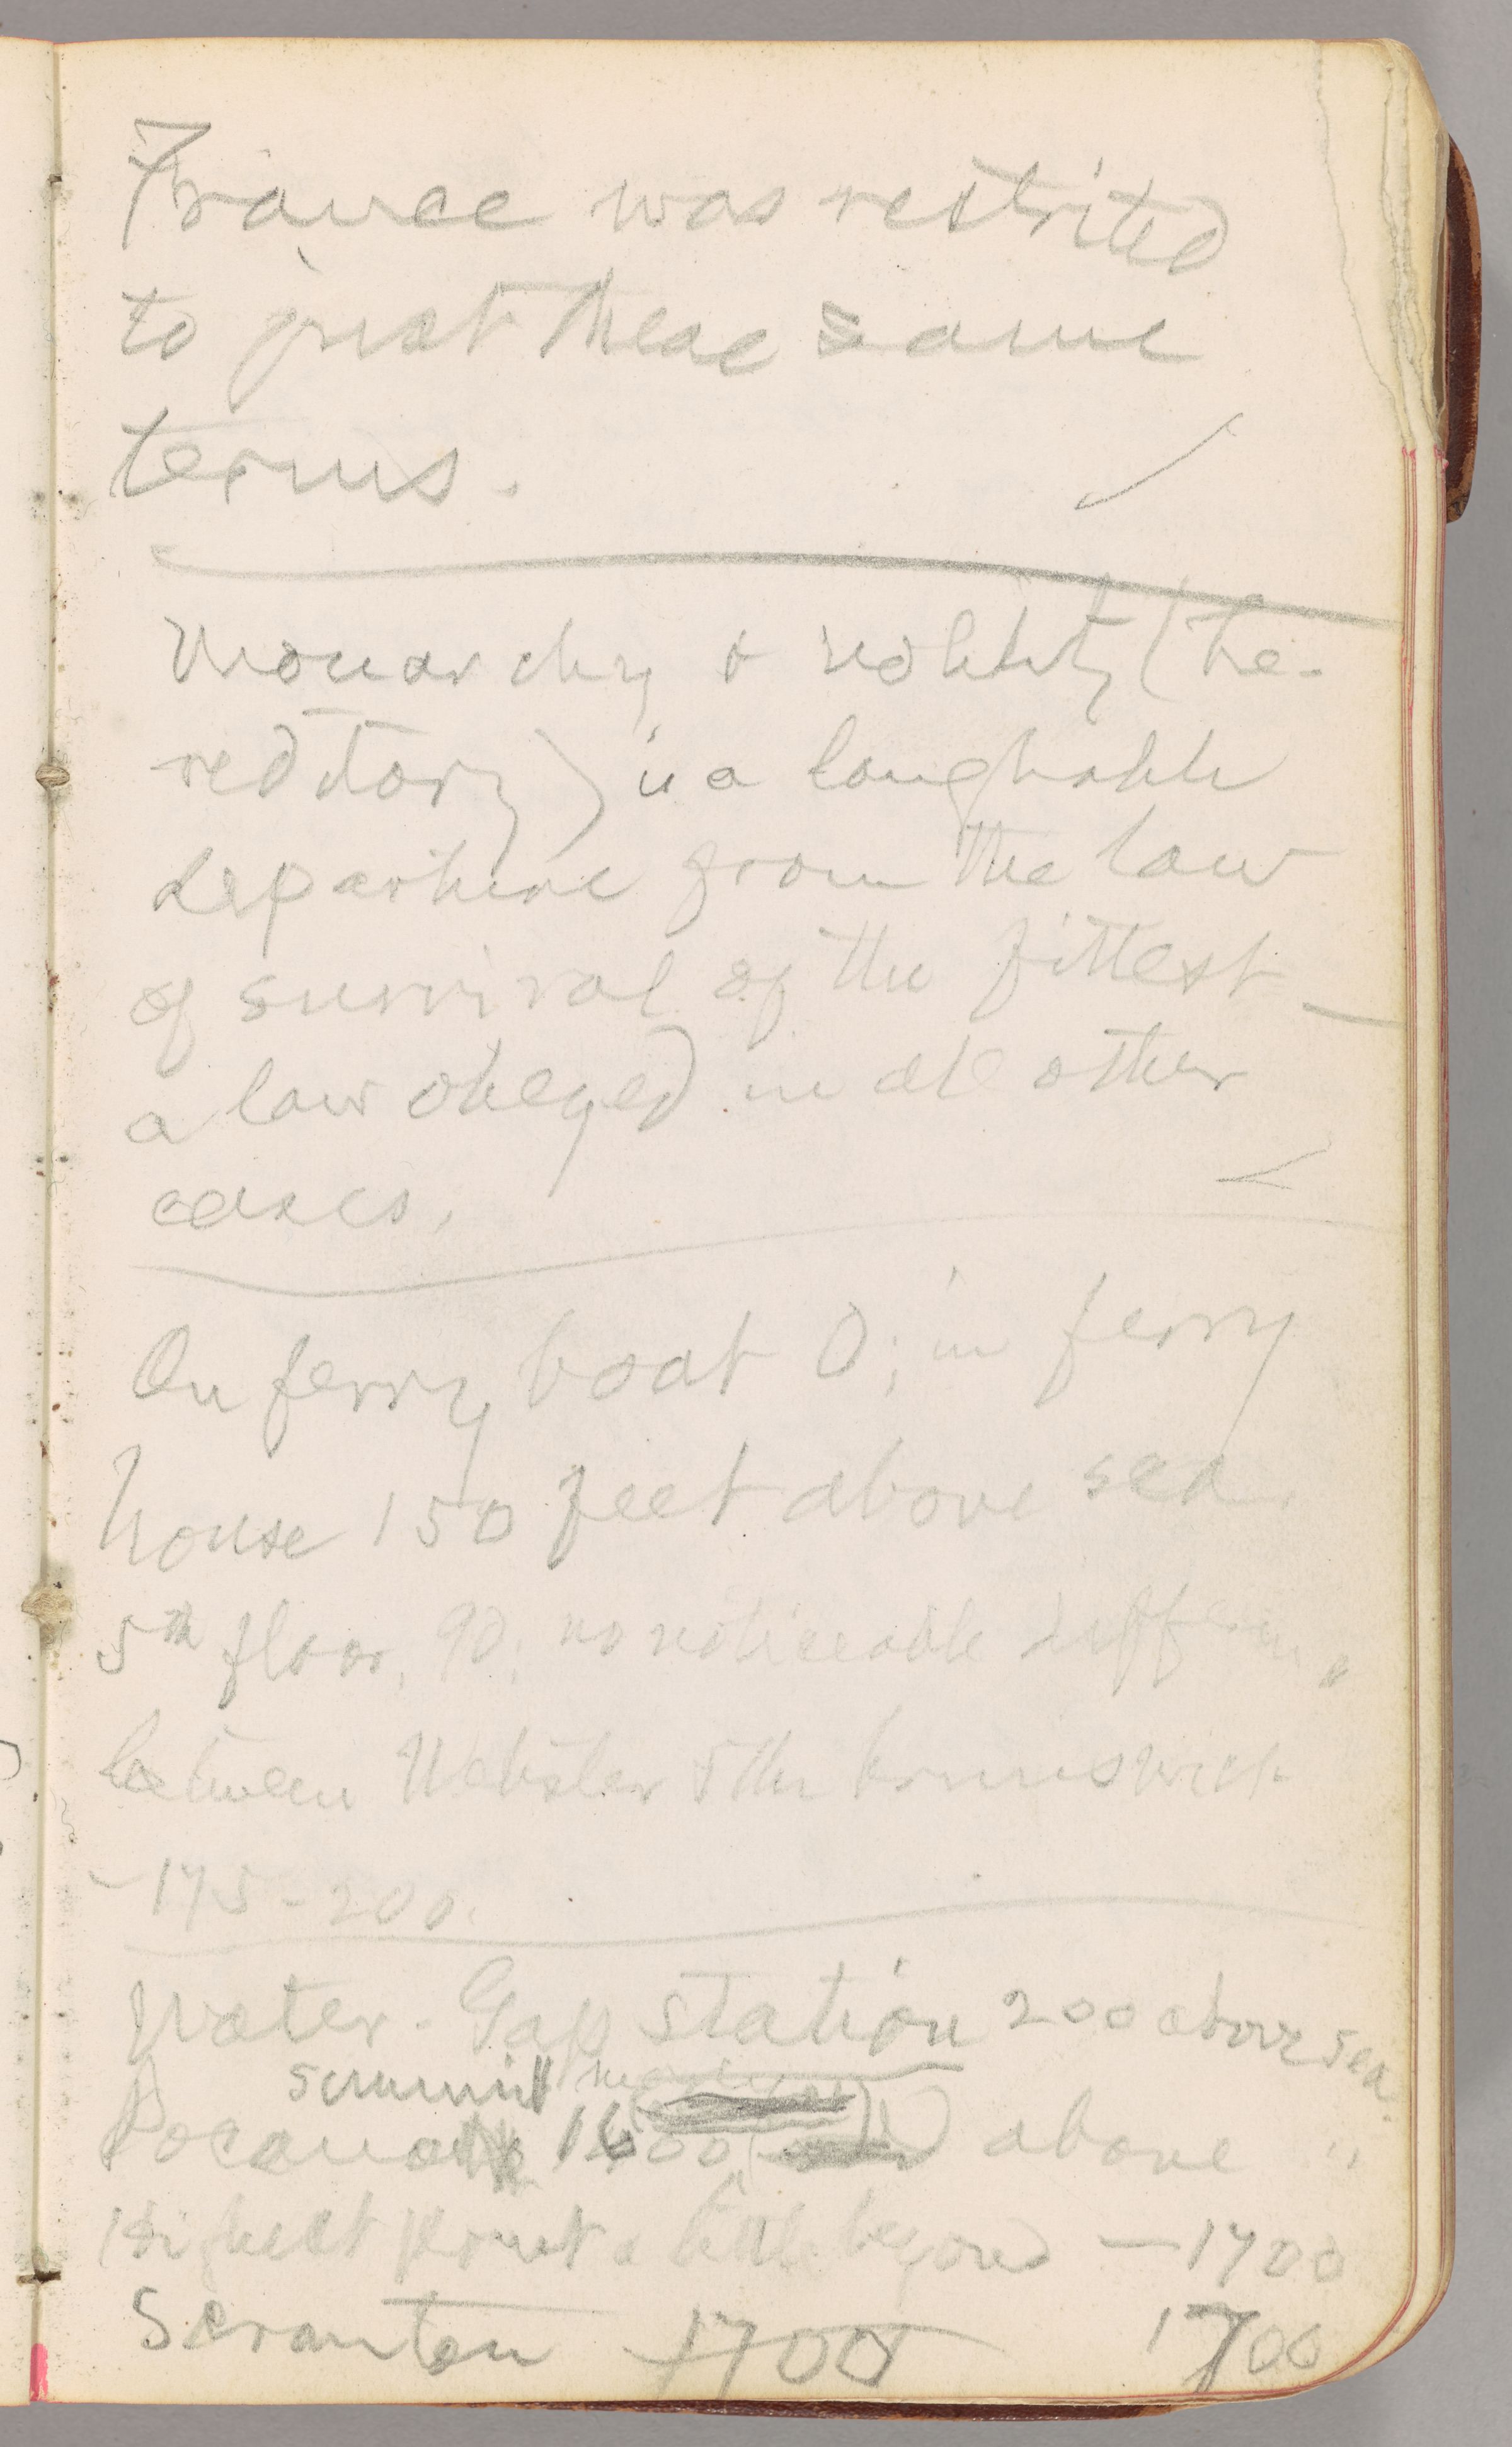 France was restrited
to just these same
terms.
Monarchy & nobility (he-
reditary) is a laughable
departure from the law
of survival of the fittest —
a law obeyed in all other
cases.
On ferry boat 0; in ferry
house 150 feet above sea.
5th floor, 90; no noticeable
between Webster & the brunswick
– 175 - 200.
Water-Gap station 200 above sea.
summit
Pocono 1600 above "
Highest point a little beyond — 1700
Scranton 1700 1700